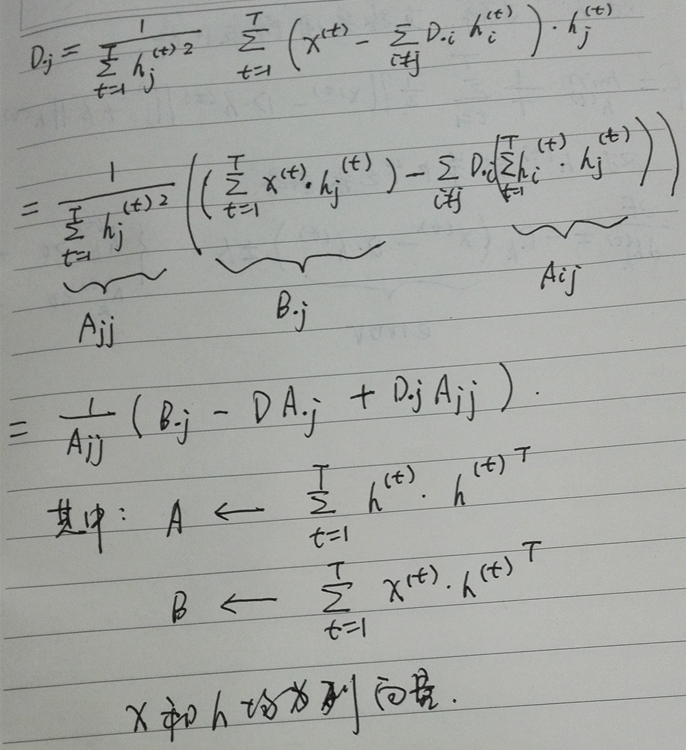 D.j = 1 / (∑_{t=1}^{T} h_j^{(t)2}) ∑_{t=1}^{T} (x^{(t)} - ∑_{i≠j} D.i h_i^{(t)}) · h_j^{(t)}
= 1 / (∑_{t=1}^{T} h_j^{(t)2}) ((∑_{t=1}^{T} x^{(t)} · h_j^{(t)}) - ∑_{i≠j} D.i (∑_{t=1}^{T} h_i^{(t)} · h_j^{(t)}))
Ajj B.j Aij
= 1 / Ajj (B.j - D A.j + D.j Ajj).
其中: A ← ∑_{t=1}^{T} h^{(t)} · h^{(t)T}
B ← ∑_{t=1}^{T} x^{(t)} · h^{(t)T}
x和h均为列向量.